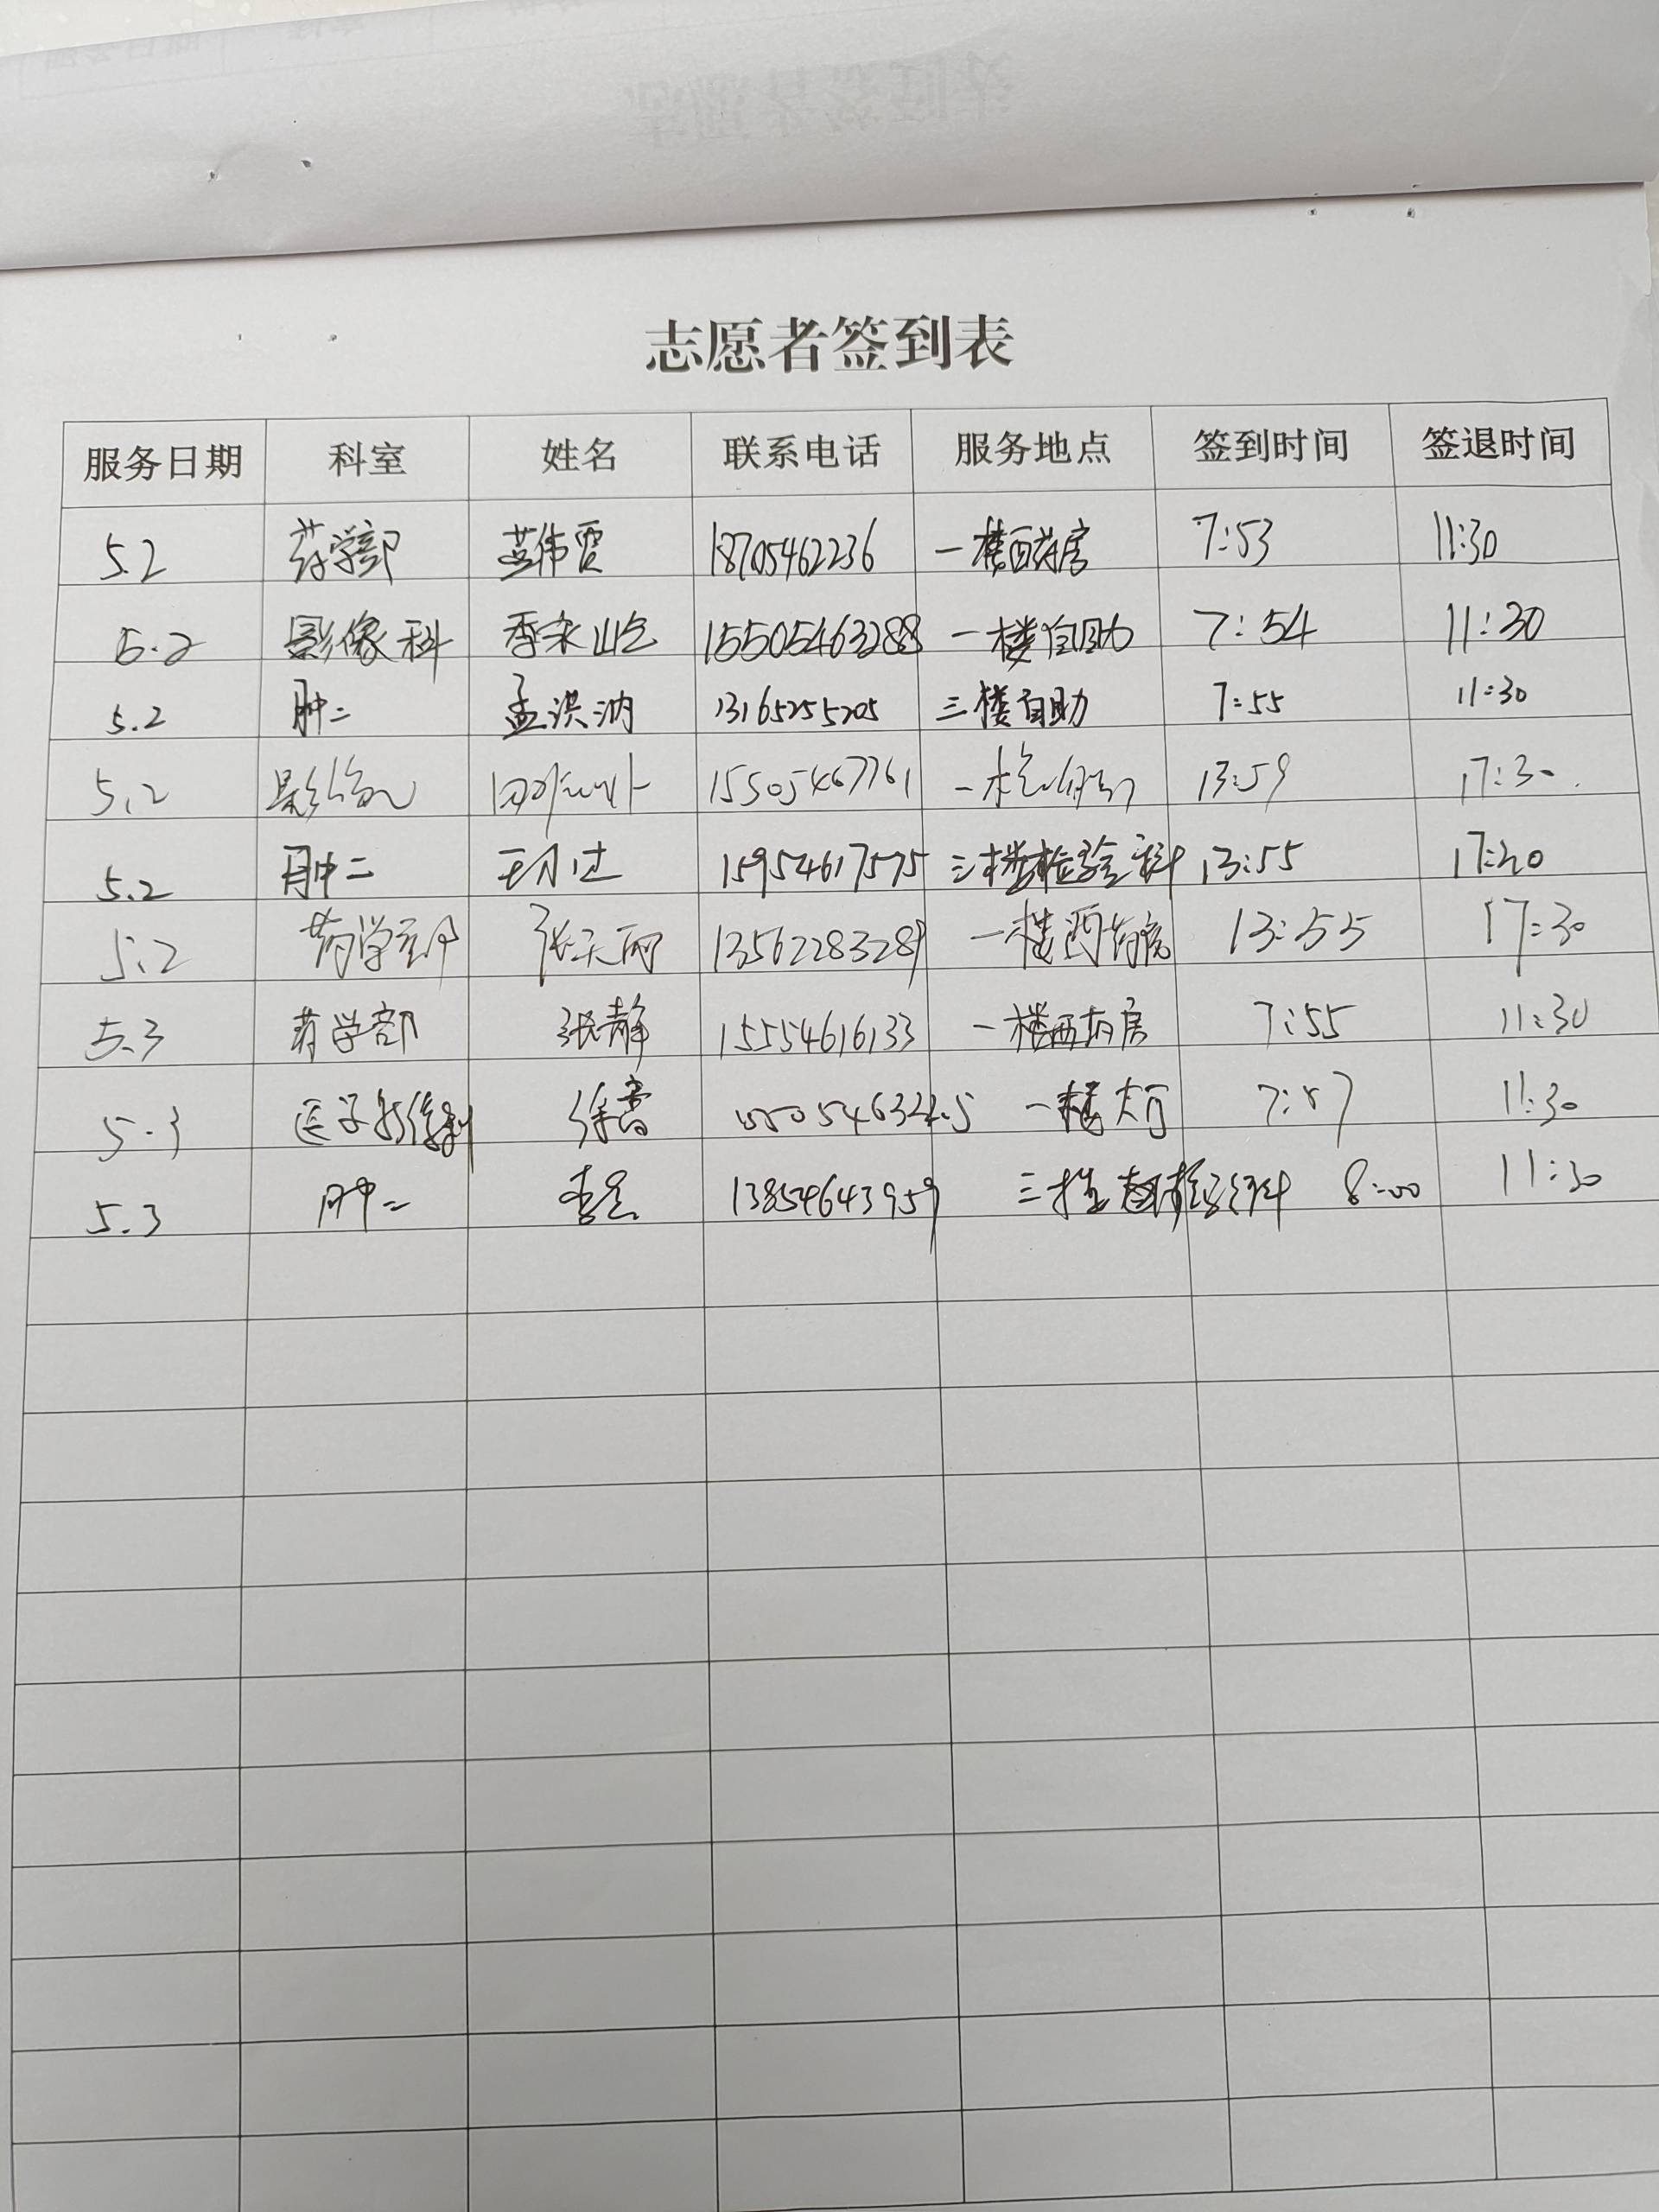 志愿者签到表
服务日期 科室 姓名 联系电话 服务地点 签到时间 签退时间
5.2 药学部 18705462236 一楼西药房 7:53 11:30
5.2 影像科 季永 15505463288 一楼自助 7:54 11:30
5.2 肿二 孟洪 13165255205 三楼自助 7:55 11:30
5.2 影像 15505467761 一楼自助 13:59 17:30
5.2 肿二 15954617575 三楼检验科 13:55 17:30
5.2 药学部 张天丽 13562283289 一楼西药房 13:55 17:30
5.3 药学部 张静 15554616133 一楼西药房 7:55 11:30
5.3 医学影像科 徐 一楼大厅 7:57 11:30
5.3 肿二 李 13854643959 三楼 检验科 8:00 11:30